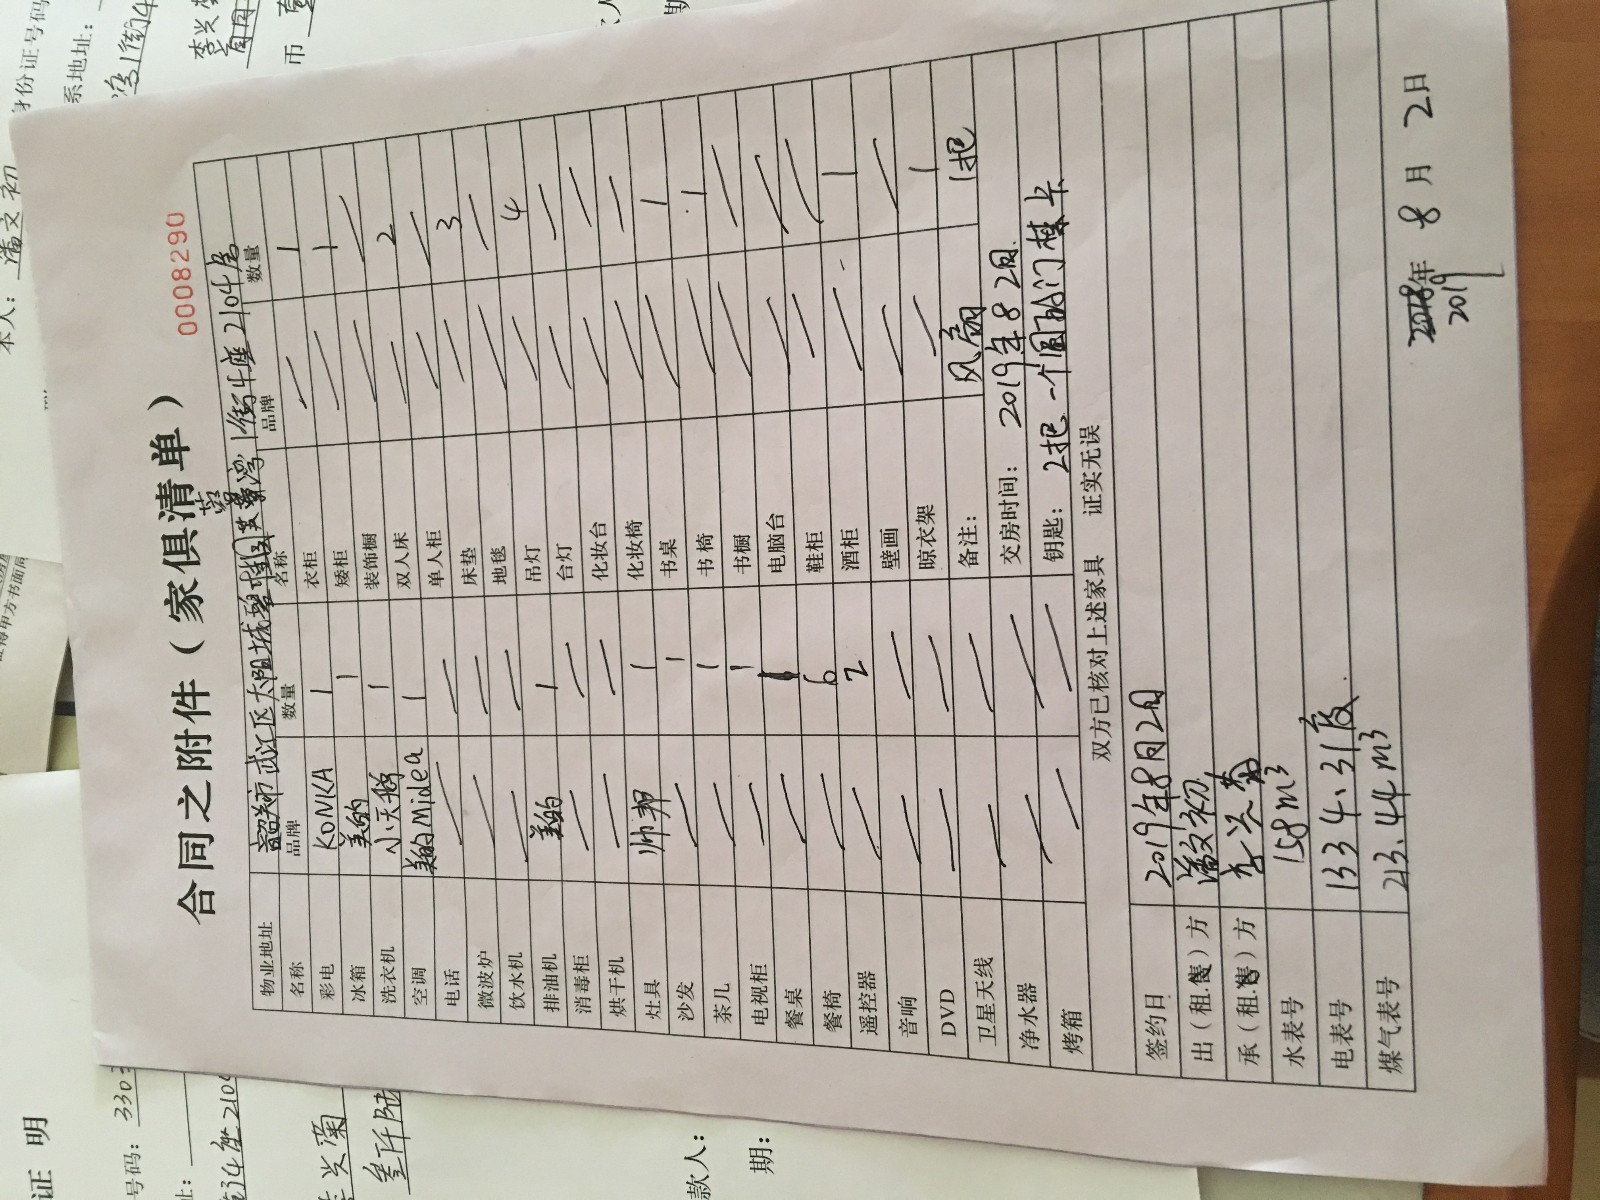 00008290
合同之附件（家俱清单）
物业地址 韶关市武江区大阳城碧桂园芙蓉湾1街4座2104房
名称 品牌 数量 名称 品牌 数量
彩电 KONKA 1 衣柜 / 1
冰箱 美的 1 矮柜 / 1
洗衣机 小天鹅 1 装饰橱 / /
空调 美的Midea 1 双人床 / 2
电话 / / 单人柜 / /
微波炉 / / 床垫 / 3
饮水机 / / 地毯 / /
排油机 美的 1 吊灯 / 4
消毒柜 / / 台灯 / /
烘干机 / / 化妆台 / /
灶具 帅邦 1 化妆椅 / /
沙发 / 1 书桌 / 1
茶几 / 1 书椅 / 1
电视柜 / 1 书橱 / /
餐桌 / 1 电脑台 / /
餐椅 / 6 鞋柜 / /
遥控器 / 2 酒柜 / 1
音响 / / 壁画 / /
DVD / / 晾衣架 / 1
卫星天线 / / 备注： 风扇 1把
净水器 / / 交房时间： 2019年8 2日
烤箱 / / 钥匙： 2把 一个 门禁卡
双方已核对上述家具 证实无误
签约日 2019年8月2日
出（租.售）方 潘文初
承（租.售）方 李兴菊
水表号 158m³
电表号 1334.31度
煤气表号 213.44m³
2018年 8 月 2 日
2019
证 明
号码： 3303
4座2104
款人：
期：
本人： 潘文初
身份证号码
系地址：
币